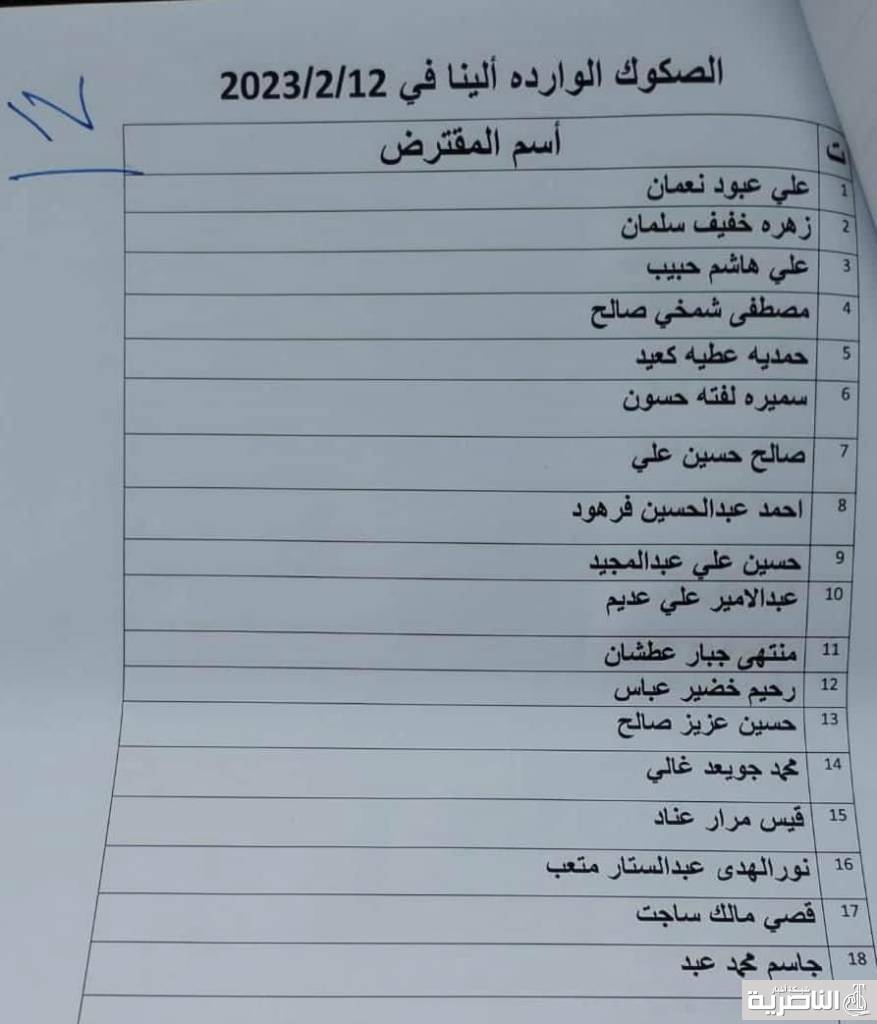 الصكوك الوارده ألينا في 2023/2/12
١٧
ت أسم المقترض
1 علي عبود نعمان
2 زهره خفيف سلمان
3 علي هاشم حبيب
4 مصطفى شمخي صالح
5 حمديه عطيه كعيد
6 سميره لفته حسون
7 صالح حسين علي
8 احمد عبدالحسين فرهود
9 حسين علي عبدالمجيد
10 عبدالامير علي عديم
11 منتهى جبار عطشان
12 رحيم خضير عباس
13 حسين عزيز صالح
14 محمد جويعد غالي
15 قيس مرار عناد
16 نورالهدى عبدالستار متعب
17 قصي مالك ساجت
18 جاسم محمد عبد
شبكة أخبار
الناصرية